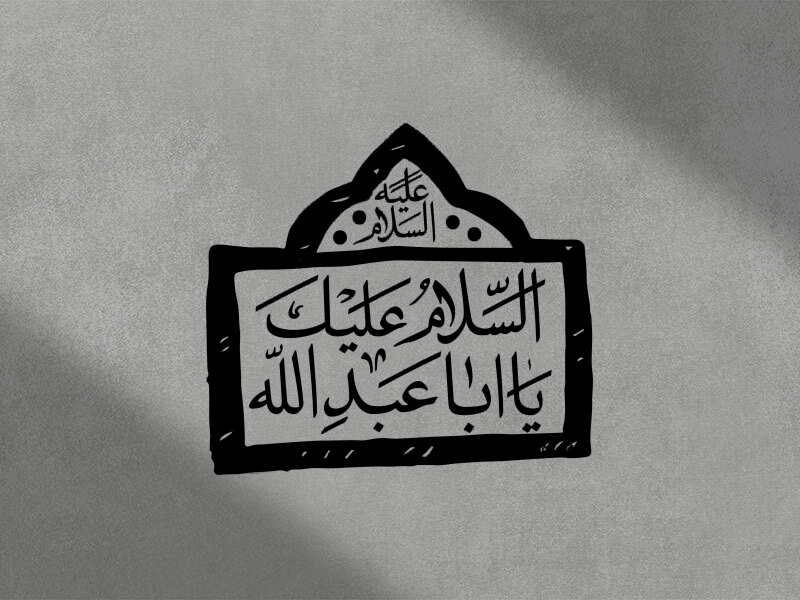 عَلَيْه
السَلام
السَّلامُ عَلَيْكَ
يَا ابا عَبْدِ اللّه